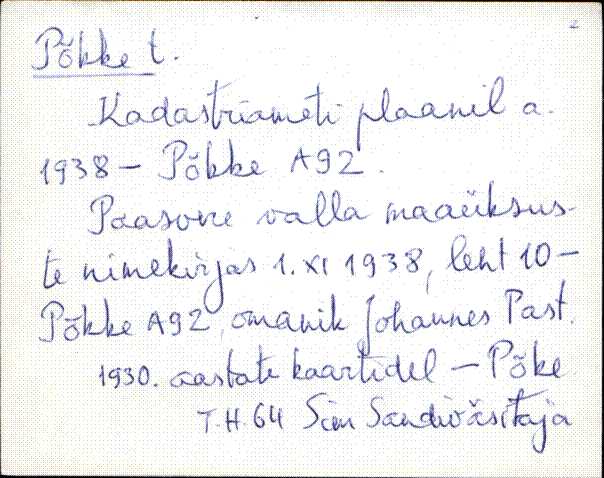 Põkke t.
Kadastriameti plaanil a.
1938 – Põkke A92.
Paasvere valla maaüksus-
te nimekirjas 1. XI 1938, leht 10 –
Põkke A92, omanik Johannes Past.
1930. aastate kaartidel – Põke
T.H. 64